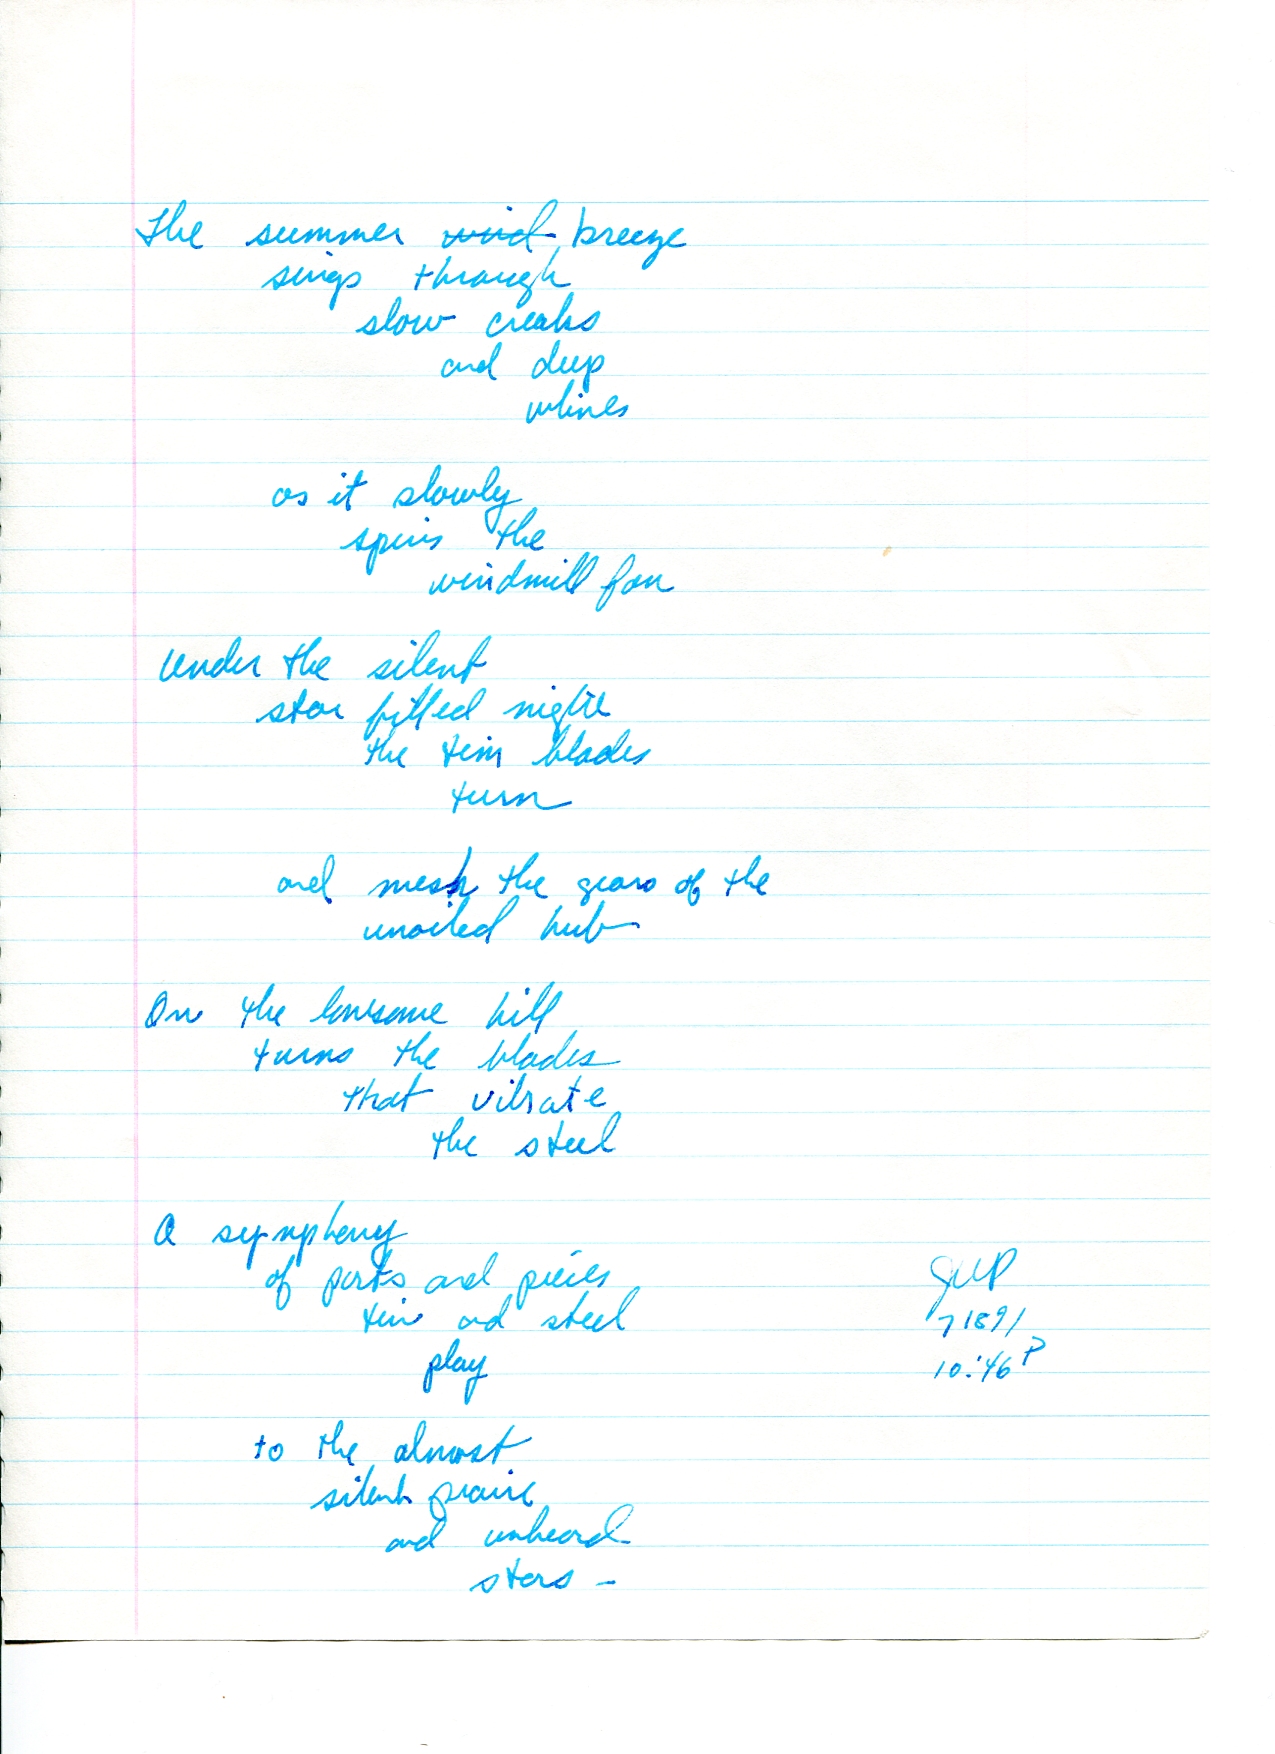 The summer wind breeze
sings through
slow creaks
and deep
whines
as it slowly
spins the
windmill fan
Under the silent
star filled night
the tin blades
turn
and mesh the gears of the
unoiled hub
On the lonesome hill
turns the blades
that vibrate
the steel
A symphony
of parts and pieces
tin and steel
play
to the almost
silent prairie
and unheard
stars -
7 18 91
10:46 P